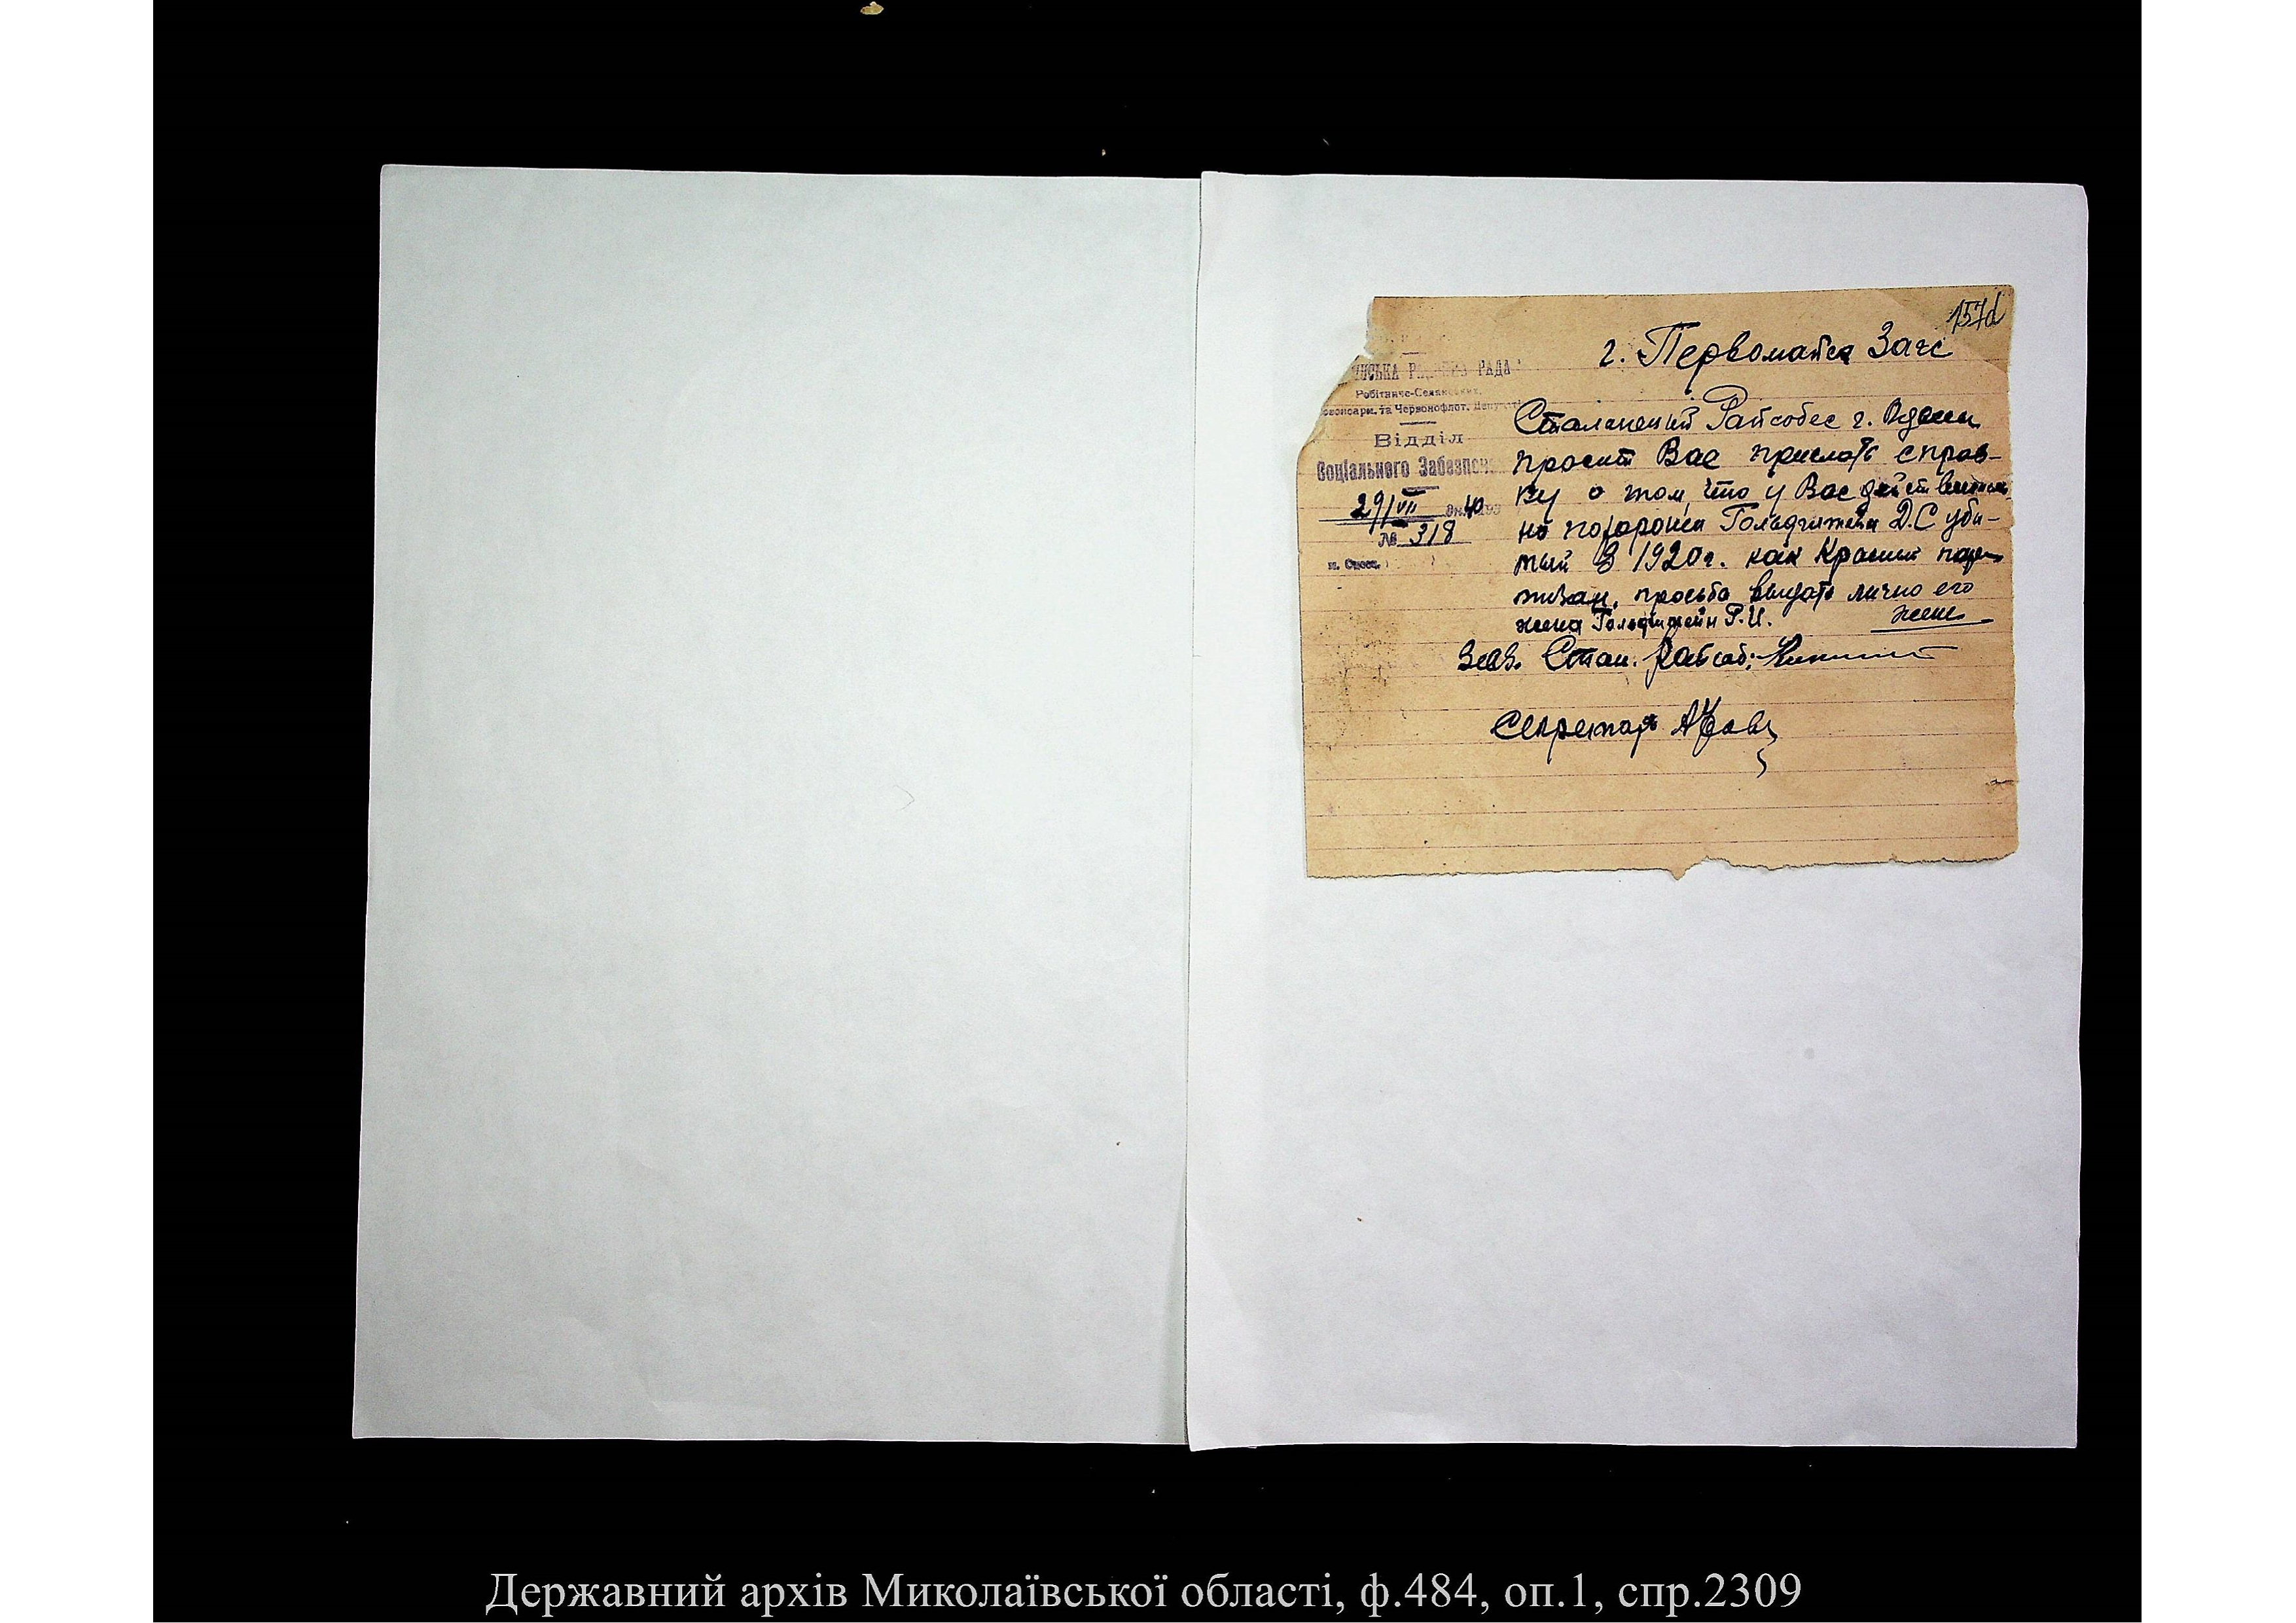 157d
г. Первомайск Загс
ИНСЬКА РАДА
Робітниче-Селянських,
воноарм. та Червонофлот. Депут
Відділ
Соціального Забезпеч
29/VII 40
№ 318
м. Одеса.
Сталинский Райсобес г. Одессы
просит Вас прислать справ-
ку о том, что у Вас действительно
но похоронен Гольдштейн Д.С уби-
тый в 1920г. как Красный пар-
тизан, просьба выдать лично его
жена Гольдштейн Р.И. жене
Завз. Стал. Райсоб:
Секретарь
Державний архів Миколаївської області, ф.484, оп.1, спр.2309